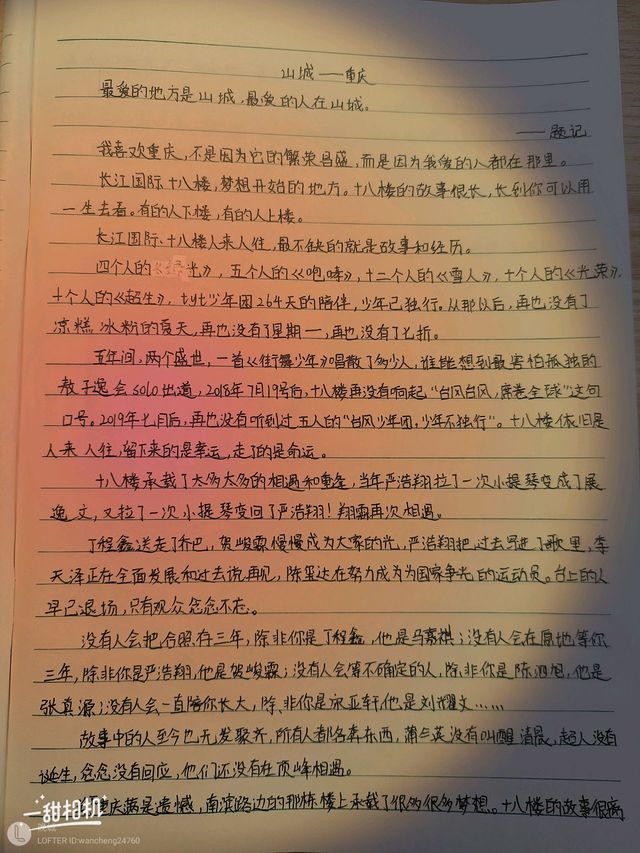 山城——重庆
最爱的地方是山城,最爱的人在山城。
——题记
我喜欢重庆,不是因为它的繁荣昌盛,而是因为我爱的人都在那里。
长江国际十八楼,梦想开始的地方。十八楼的故事很长,长到你可以用
一生去看。有的人下楼,有的人上楼。
长江国际、十八楼人来人往,最不缺的就是故事和经历。
四个人的《绿光》,五个人的《咆哮》,十二个人的《雪人》,十个人的《光荣》,
十个人的《超生》,tyt少年团264天的陪伴,少年已独行。从那以后,再也没有了
凉糕冰粉的夏天,再也没有了星期一,再也没有了七折。
五年间,两个盛世,一首《街舞少年》唱散了多少人,谁能想到最害怕孤独的
敖子逸会solo出道,2018年7月19号后,十八楼再没有响起“台风台风,席卷全球”这句
口号。2019年七月后,再也没有听到过五人的“台风少年团,少年不独行”。十八楼依旧是
人来人往,留下来的是幸运,走了的是命运。
十八楼承载了太多太多的相遇和重逢,当年严浩翔拉了一次小提琴变成了展
逸文,又拉了一次小提琴变回了严浩翔!翔霖再次相遇。
丁程鑫送走了乔巴,贺峻霖慢慢成为大家的光,严浩翔把过去写进了歌里,李
天泽正在全面发展和过去说再见,陈玺达在努力成为为国家争光的运动员。台上的人
早已退场,只有观众念念不忘。
没有人会把合照存三年,除非你是丁程鑫,他是马嘉祺;没有人会在原地等你
三年,除非你是严浩翔,他是贺峻霖;没有人会等不确定的人,除非你是陈泗旭,他是
张真源;没有人会一直陪你长大,除非你是宋亚轩,他是刘耀文……
故事中的人至今也无发聚齐,所有人都各奔东西,蒲公英没有叫醒清晨,超人没有
诞生,念念没有回应,他们还没有在顶峰相遇。
重庆满是遗憾,南滨路边的那栋楼上承载了很多很多梦想。十八楼的故事很满
一甜相机
LOFTER ID:wancheng24760